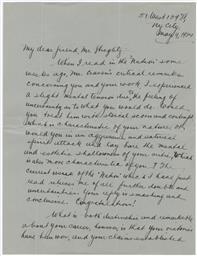 51 West 129 St
Ny City
May 9, 1924
My dear friend, Mr. Shuphly:
When I read in the Nation some
weeks ago, Mr. critical remarks
concerning you and your work, I experienced
a slight mental tension due to the feeling of
uncertainty as to what you would do. Would
you treat him with stoical scorn and contempt
which is characteristic of your nature, or
would you in an aggressive and satirical
attack and lay bare the mental
and aesthetic shallowness of your critic, which
is also more characteristic of you? The
current issue of the Nation which I have just
read relieves me of all further doubts and
uncertainties. Your reply is smashing and
conclusive. Congratulations!
What is both distinctive and remarkable
about your career, however, is that your victories
have been won, and your claims established